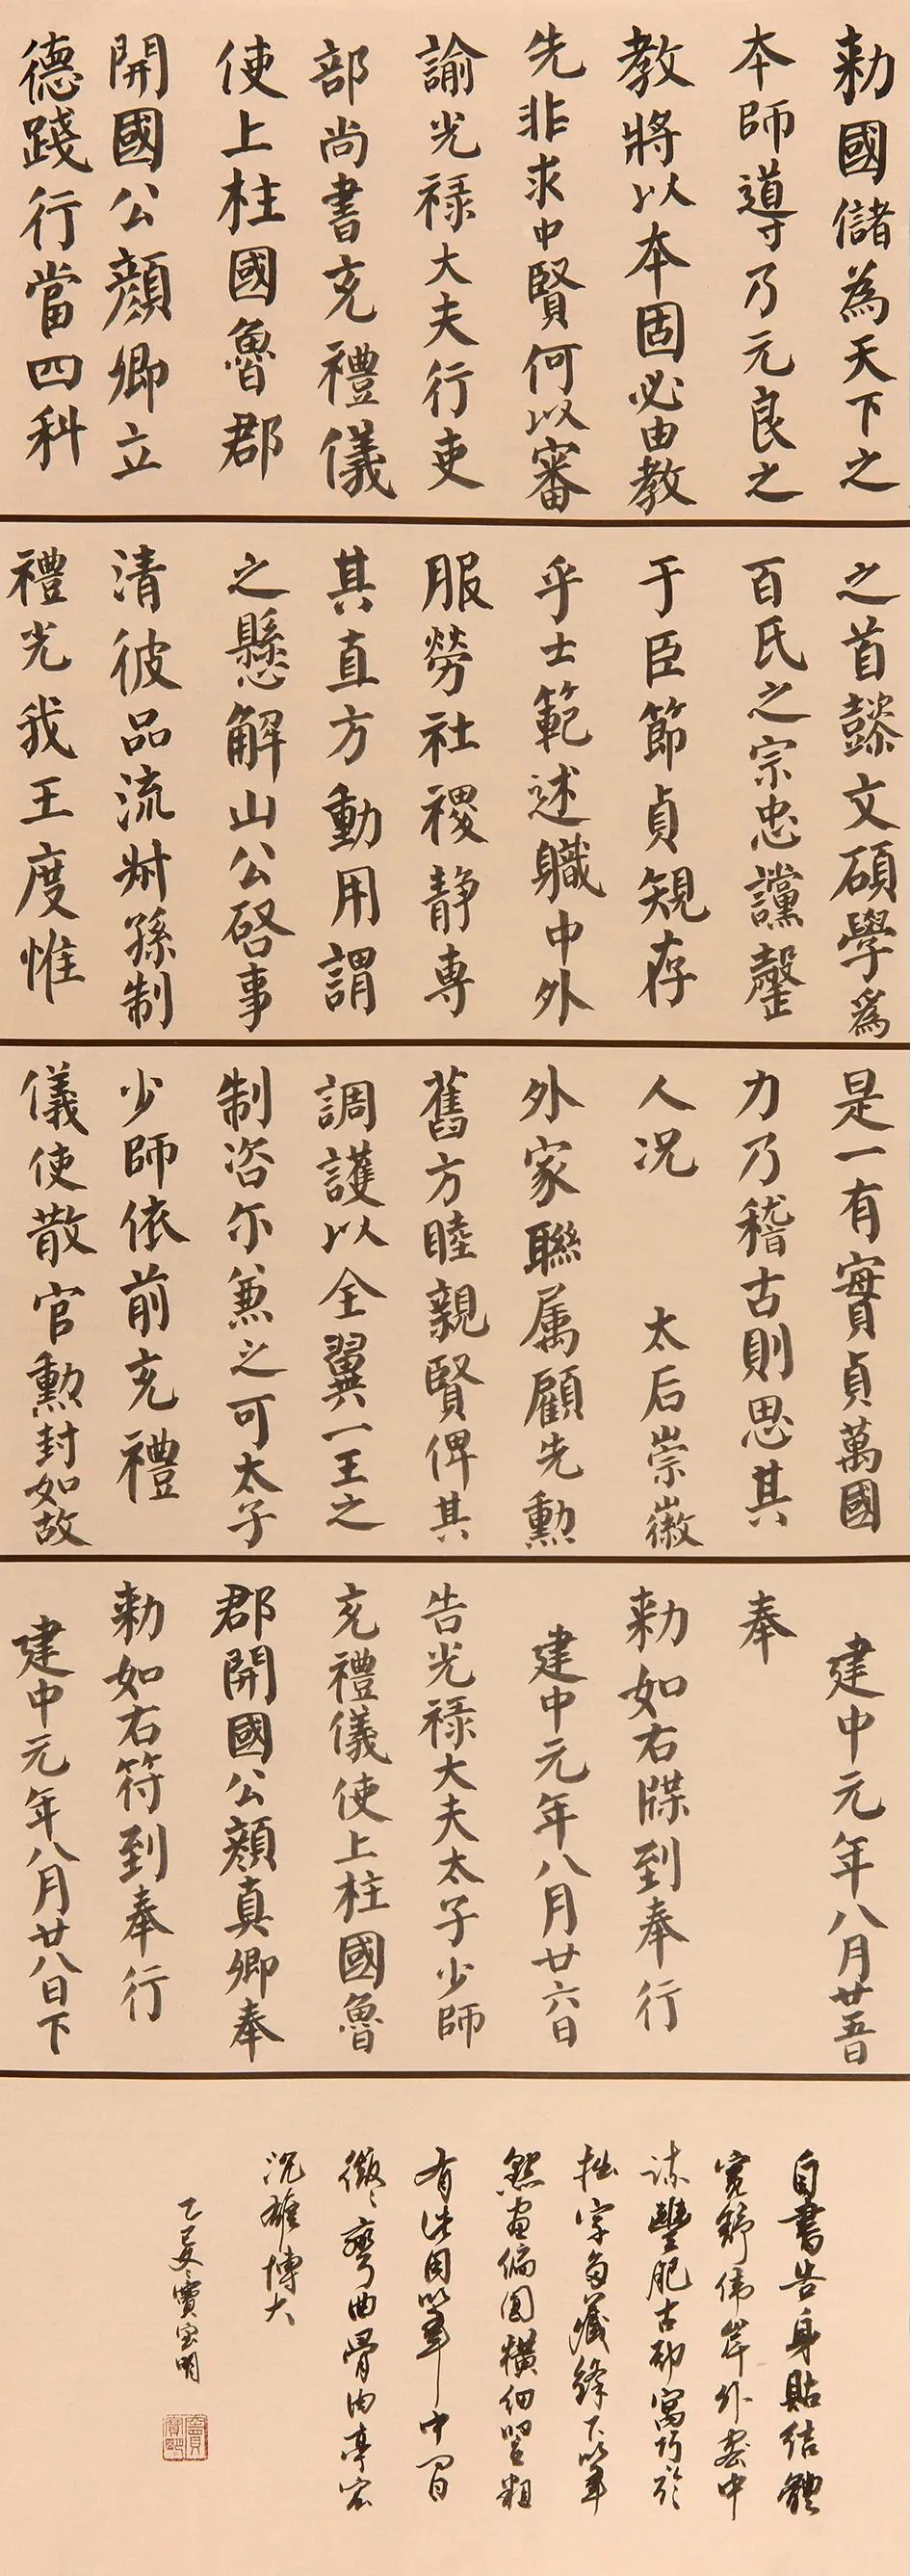 勅國儲為天下之
本師導乃元良之
教將以本固必由教
先非求中賢何以審
諭光禄大夫行吏
部尚書充禮儀
使上柱國魯郡
開國公顏卿立
德踐行當四科
之首懿文碩學為
百氏之宗忠讜罄
于臣節貞規存
乎士範述職中外
服勞社稷静専
其直方動用謂
之懸解山公啓事
清彼品流叔孫制
禮光我王度惟
是一有實貞萬國
力乃稽古則思其
人况 太后崇徽
外家聯属顧先勲
舊方睦親賢俾其
調護以全翼一王之
制咨尓兼之可太子
少師依前充禮
儀使散官勲封如故
建中元年八月廿五日
奉
勅如右牒到奉行
建中元年八月廿六日
告光禄大夫太子少師
充禮儀使上柱國魯
郡開國公顏真卿奉
勅如右符到奉行
建中元年八月廿八日下
自書告身貼结體
寬舒伟岸外密中
疏豐肥古砌寓巧於
拙字多藏鋒下筆
點画偏圆横细竖粗
有法用筆中間
微微彎曲骨肉亭宏
沉雄博大
乙冬賣寶明